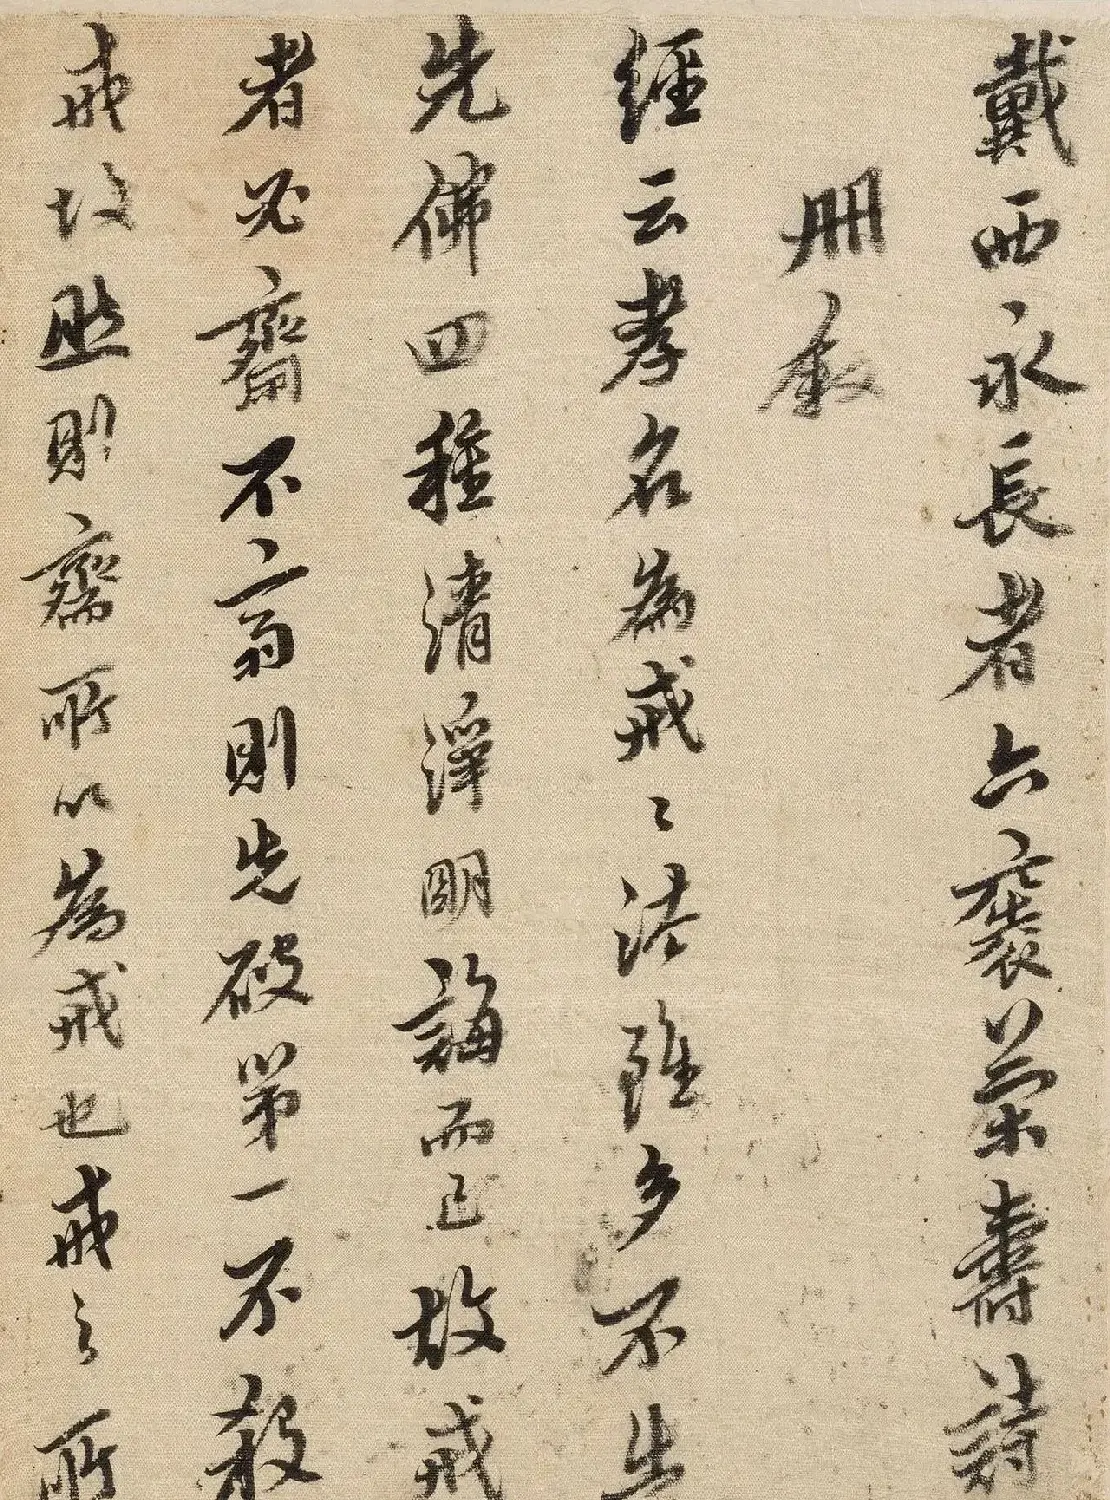 戴西永長者六袠榮壽詩
冊敘
經云孝名為戒〻法雖多不出
先佛四種清淨明誨而已故戒
者必齋不齋則先破第一不殺
戒故然則齋所以為戒也戒之所